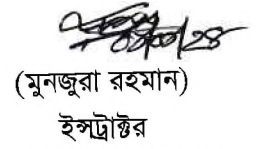 (মুনজুরা রহমান)
ইন্সট্রাক্টর